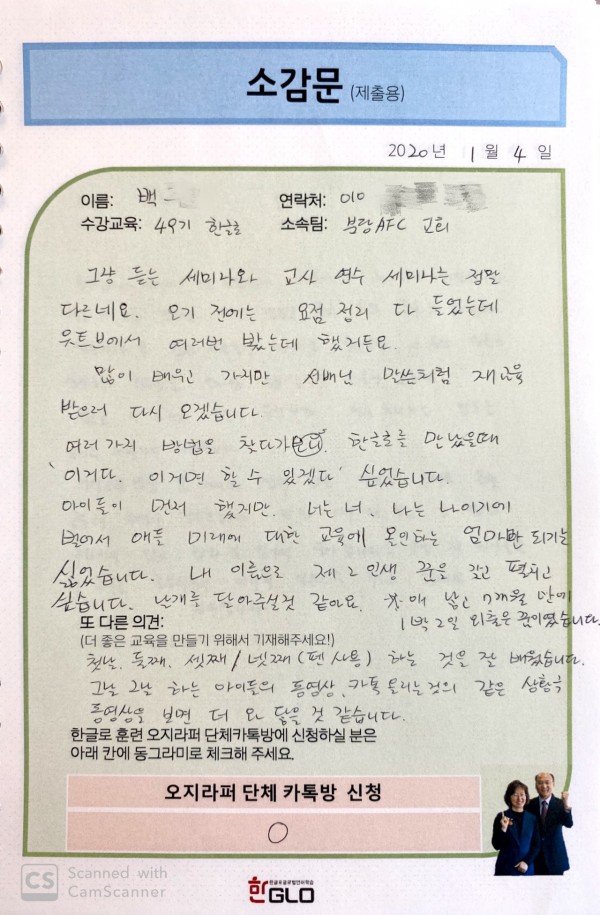 소감문 (제출용)
2020년 1월 4일
이름: 백
연락처: 010
수강교육: 49기 한글로
소속팀: 부랑AFC 교회
그냥 듣는 세미나와 교사 연수 세미나는 정말
다르네요. 오기 전에는 요점 정리 다 들었는데
유트브에서 여러번 봤는데 했거든요.
많이 배우고 가지만 선배님 말씀처럼 재교육
받으러 다시 오겠습니다.
여러가지 방법을 찾다가 한글로를 만났을때
'이거다. 이거면 할 수 있겠다' 싶었습니다.
아이들이 먼저 했지만. 너는 너. 나는 나이기에
벌어서 애들 미래에 대한 교육에 올인하는 엄마만 되기는
싫었습니다. 내 이름으로 제 2 인생 꿈을 갖고 펼치고
싶습니다. 날개를 달아주실것 같아요. ※애 낳고 7개월 만에
1박 2일 외출은 꿈이였습니다.
또 다른 의견:
(더 좋은 교육을 만들기 위해서 기재해주세요!)
첫날, 둘째, 셋째/넷째 (펜 사용) 하는 것을 잘 배웠습니다.
그날 그날 하는 아이들의 동영상, 카톡 올리는것의 같은 상황극
동영상을 보면 더 와 닿을 것 같습니다.
한글로 훈련 오지라퍼 단체카톡방에 신청하실 분은
아래 칸에 동그라미로 체크해 주세요.
오지라퍼 단체 카톡방 신청
○
CS Scanned with
CamScanner
한GLO